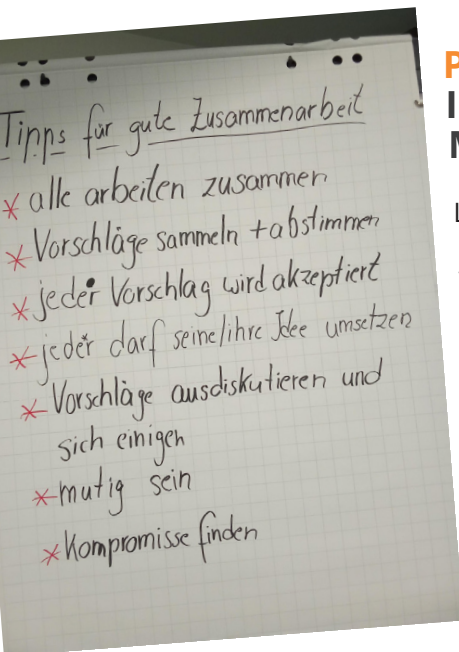 Tipps für gute Zusammenarbeit
* alle arbeiten zusammen
* Vorschläge sammeln + abstimmen
* jeder Vorschlag wird akzeptiert
* jeder darf seine/ihre Idee umsetzen
* Vorschläge ausdiskutieren und
sich einigen
* mutig sein
* Kompromisse finden